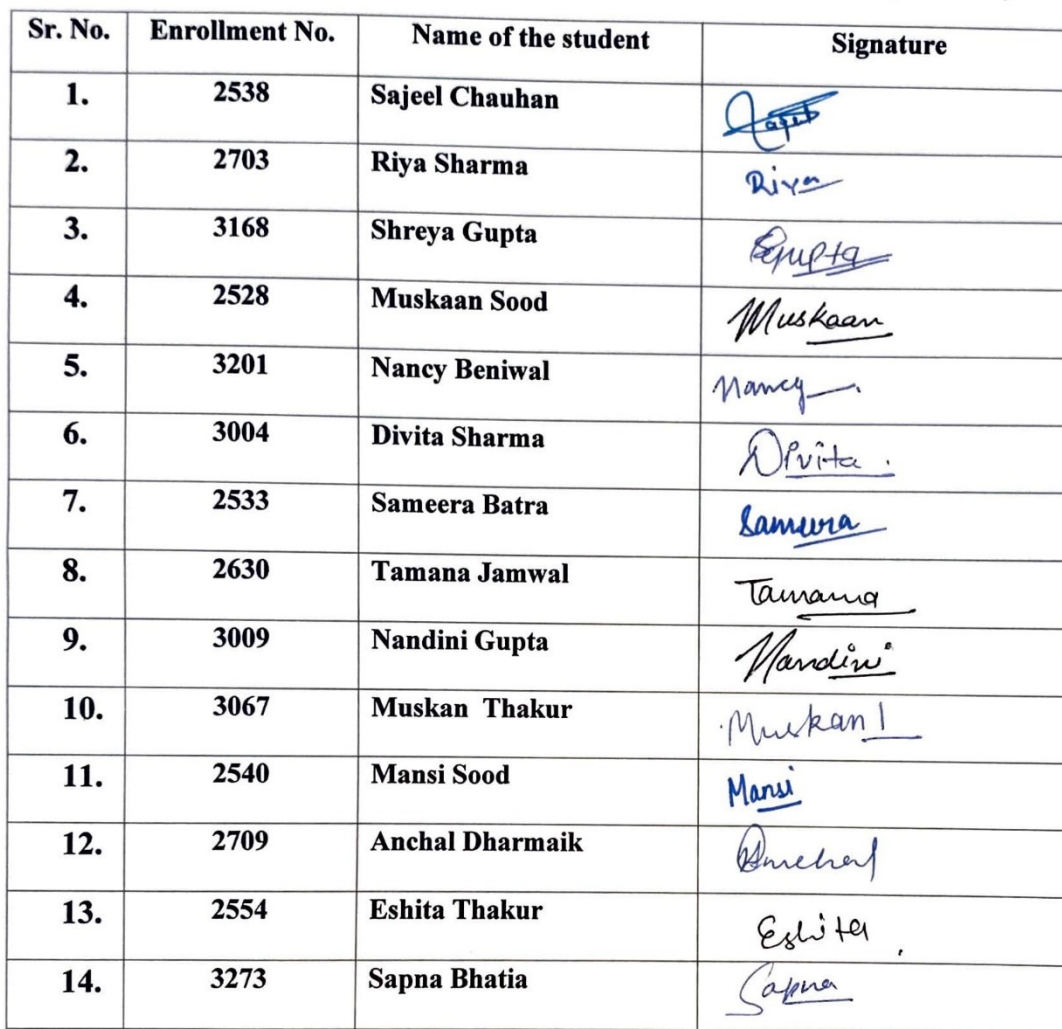 Sr. No. Enrollment No. Name of the student Signature
1. 2538 Sajeel Chauhan
2. 2703 Riya Sharma Riya
3. 3168 Shreya Gupta SGupta
4. 2528 Muskaan Sood Muskaan
5. 3201 Nancy Beniwal Nancy
6. 3004 Divita Sharma Divita.
7. 2533 Sameera Batra Sameera
8. 2630 Tamana Jamwal Tamana
9. 3009 Nandini Gupta Nandini
10. 3067 Muskan Thakur Muskan
11. 2540 Mansi Sood Mansi
12. 2709 Anchal Dharmaik Anchal
13. 2554 Eshita Thakur Eshita
14. 3273 Sapna Bhatia Sapna